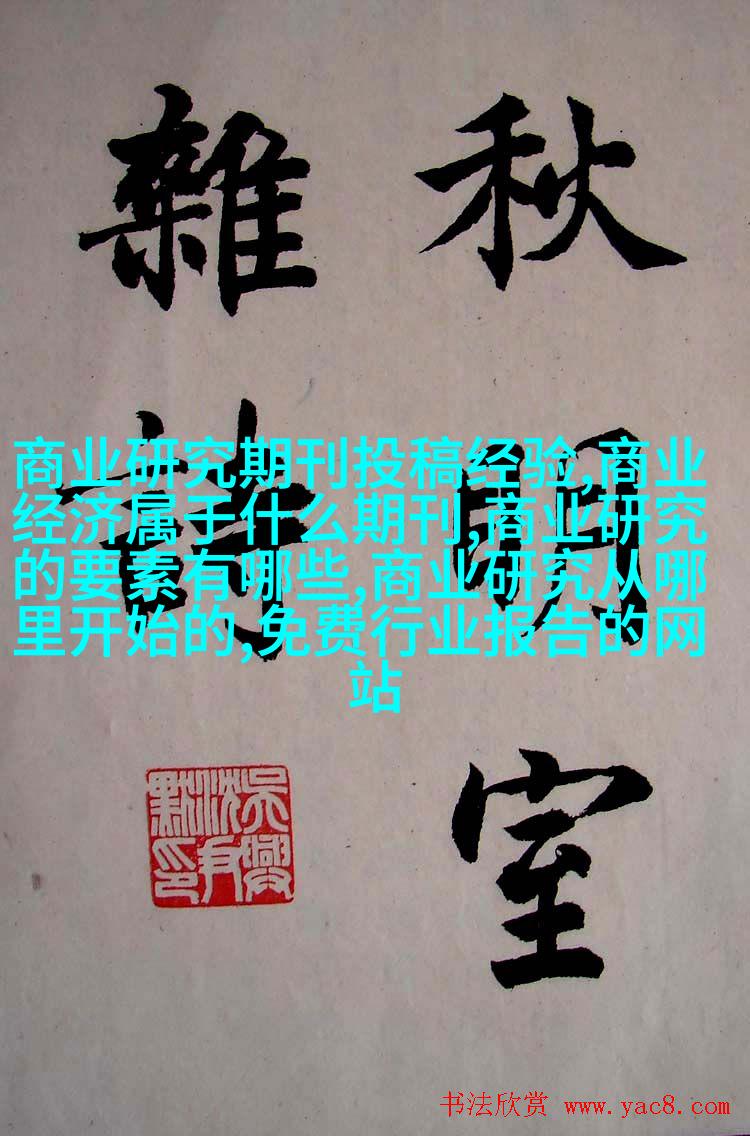 秋明室
雜詩
商业研究期刊投稿经验,商业
经济属于什么期刊,商业研究
的要素有哪些,商业研究从哪
里开始的,免费行业报告的网
站
吳興
沈尹
默印
书法欣赏 www.yac8.com